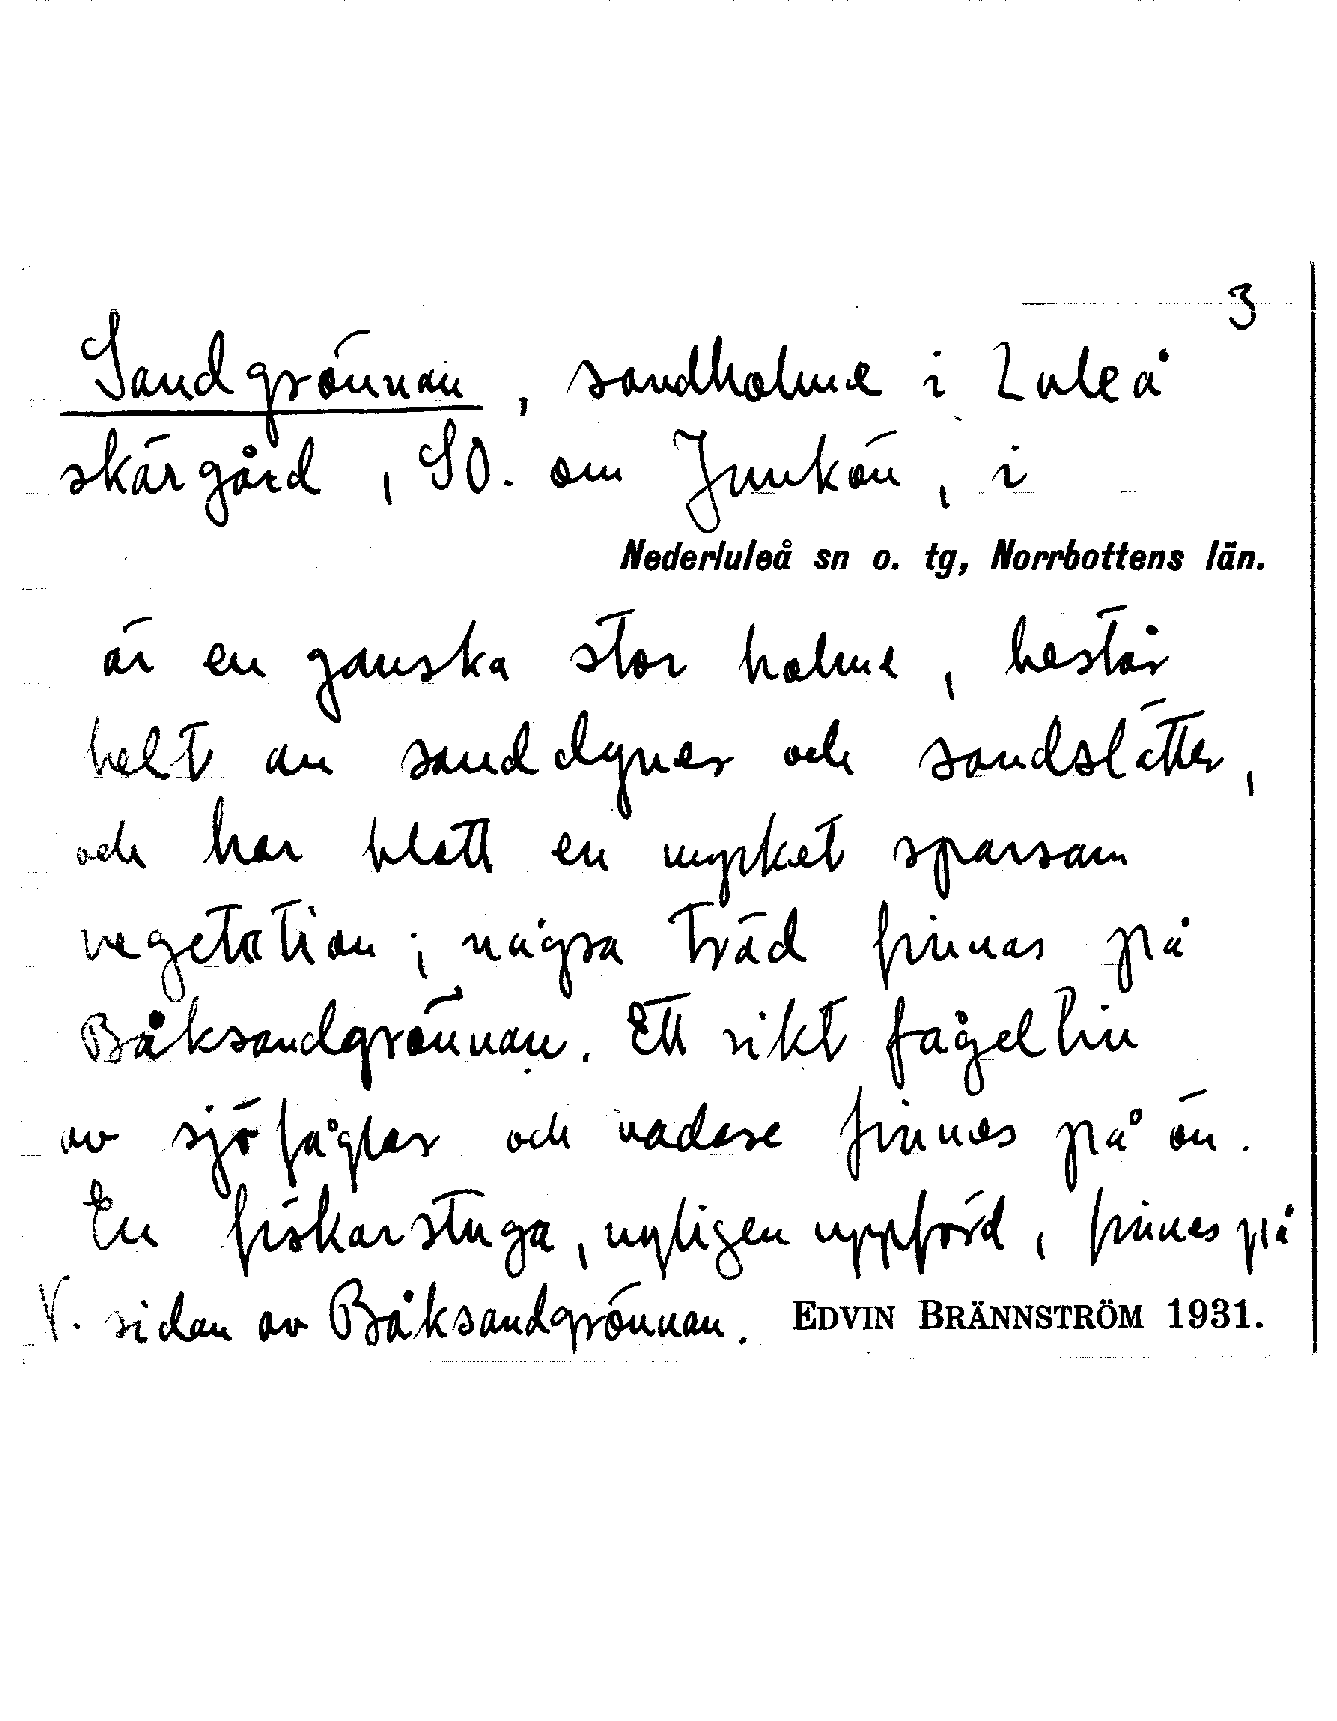 3
Sandgrönnan, sandholme i Luleå
skärgård, SO. om Junkön, i
Nederluleå sn o. tg, Norrbottens län.
är en ganska stor holme, består
helt av sanddyner och sandslätter,
och har blott en mycket sparsam
vegetation; några träd finnas på
Båksandgrönnan. Ett rikt fågelliv
av sjöfåglar och vadare finnes på ön.
En fiskarstuga, nyligen uppförd, finnes på
V. sidan av Båksandgrönnan. EDVIN BRÄNNSTRÖM 1931.